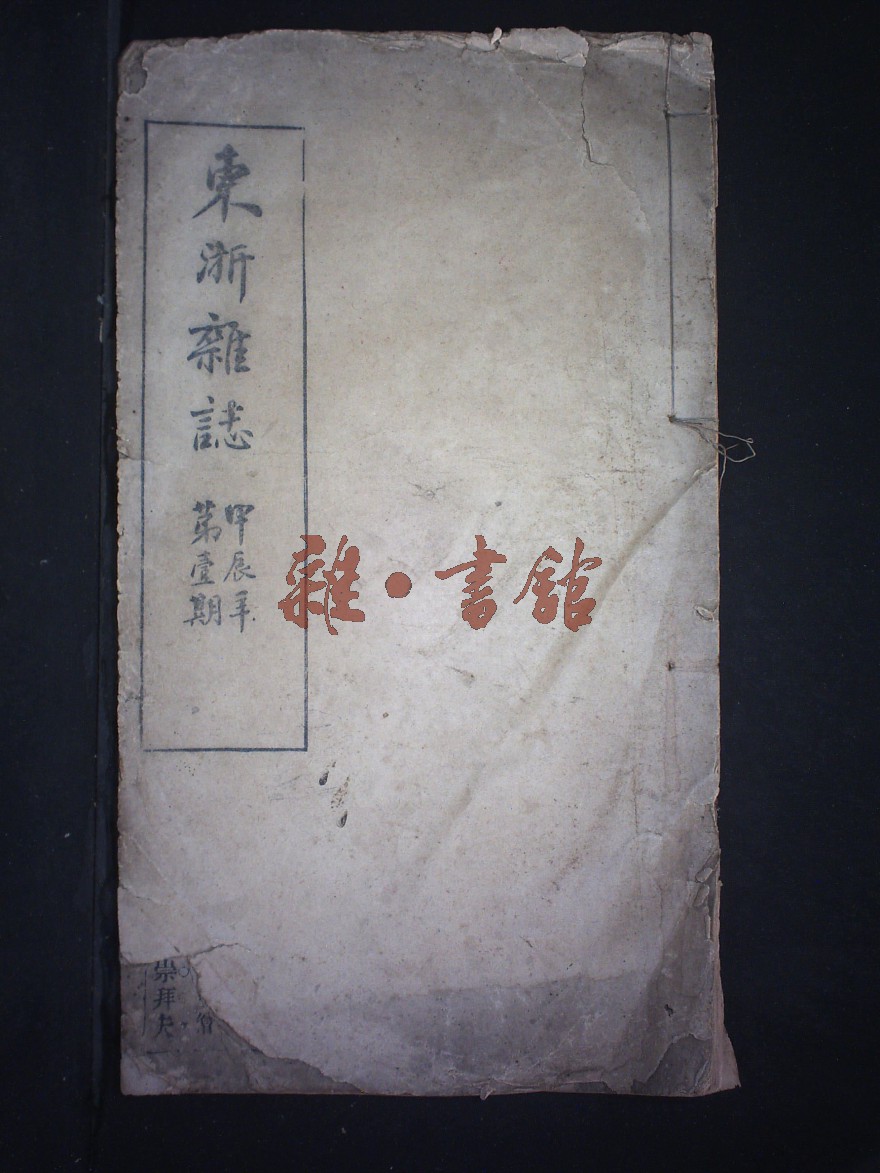 東浙雜誌
甲辰年
第壹期
雜·書館
崇拜